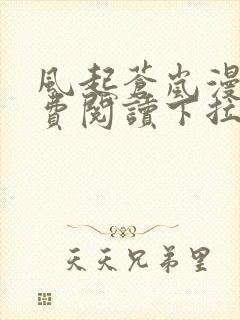 風起蒼嵐漫
費閱讀下拉
天天兄弟里